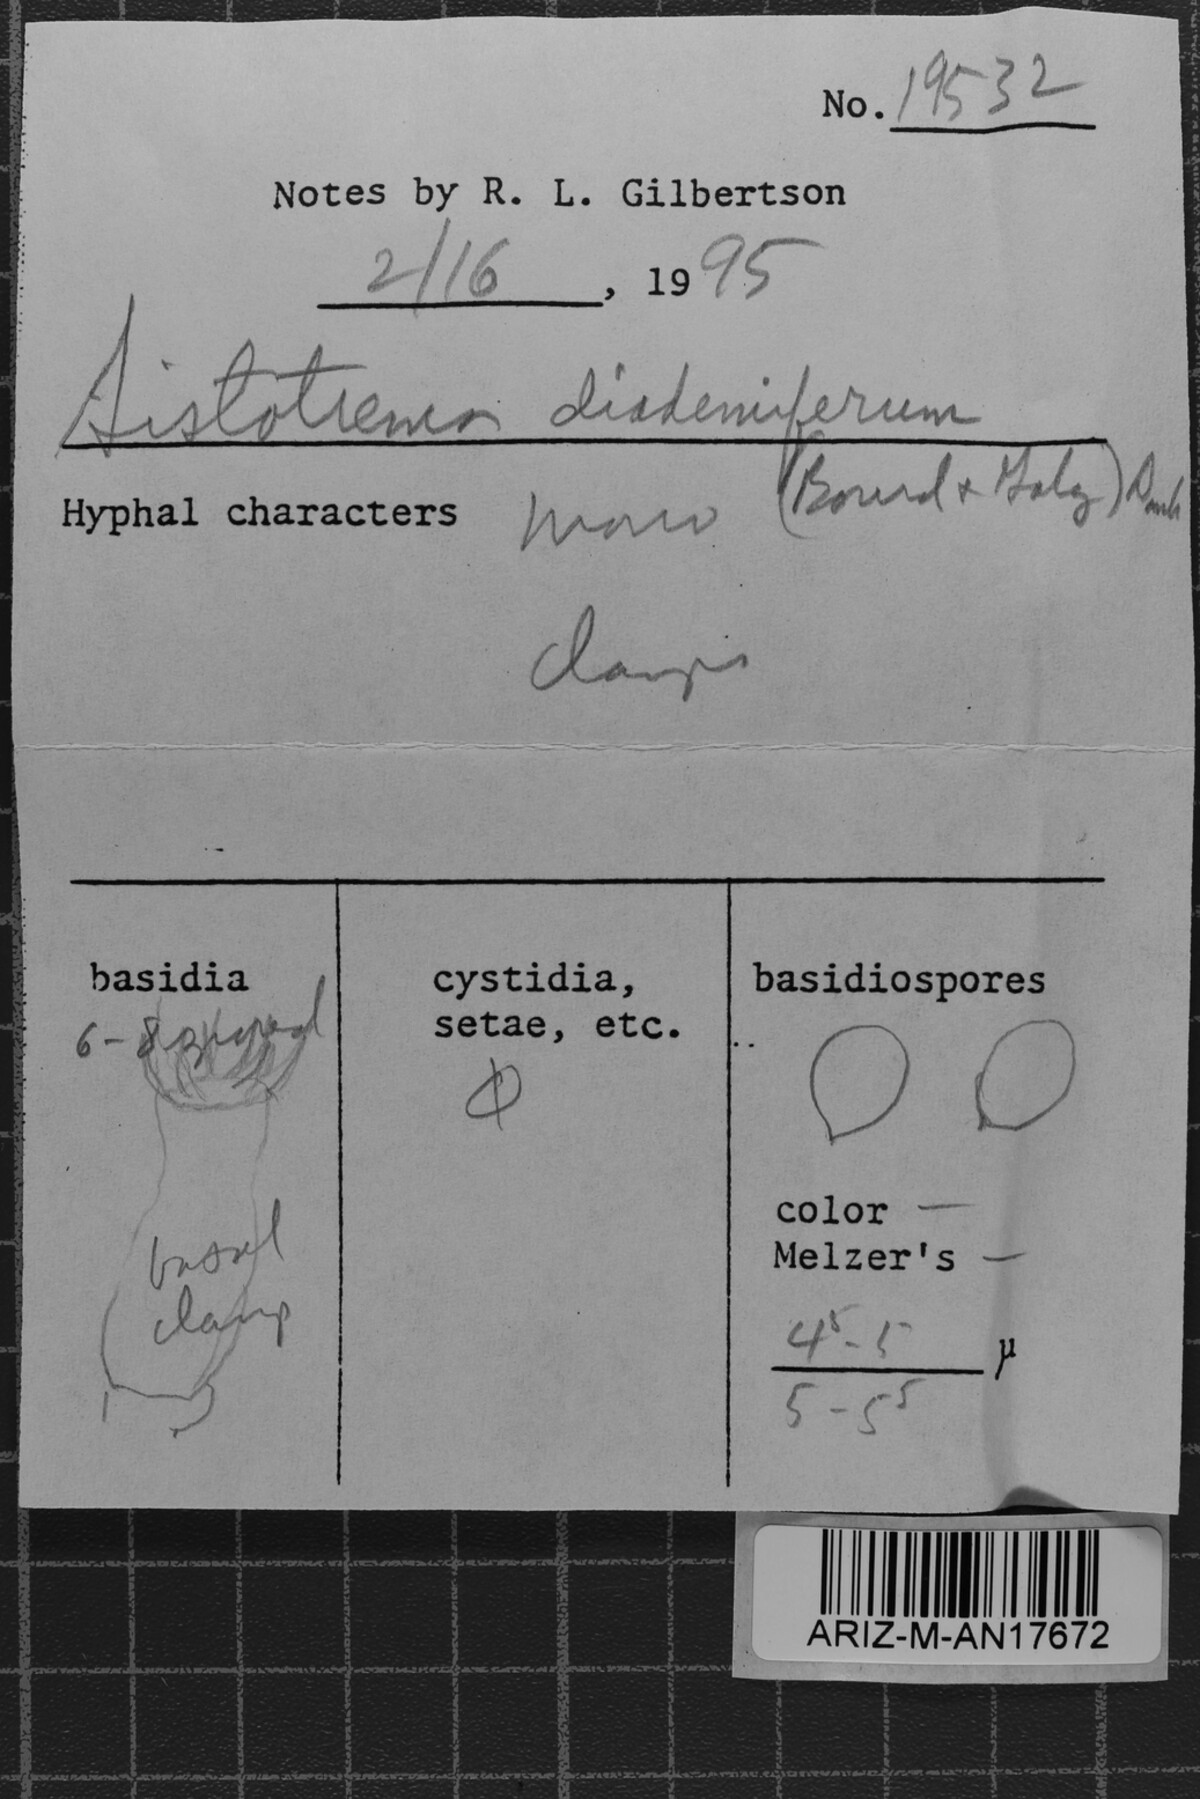 No. 19532
Notes by R. L. Gilbertson
2/16, 1995
Sistotrema diademiferum
(Bourd & Galz) Donk
Hyphal characters mono
clamps
basidia
6-8 spored
basal
clamp
cystidia,
setae, etc.
basidiospores
color —
Melzer's —
4⁵-5 µ
5-5⁵
ARIZ-M-AN17672